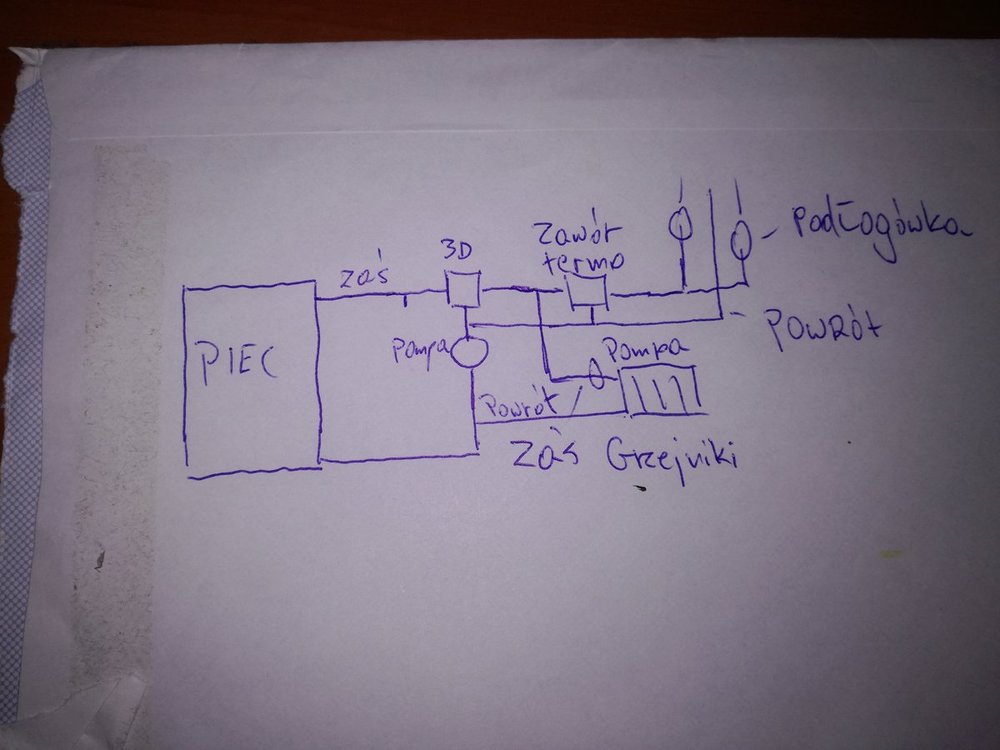 Zawór
termo
3D
zaś
Podłogówka
PIEC
Pompa
Pompa
Powrót
Powrót
Zaś Grzejniki